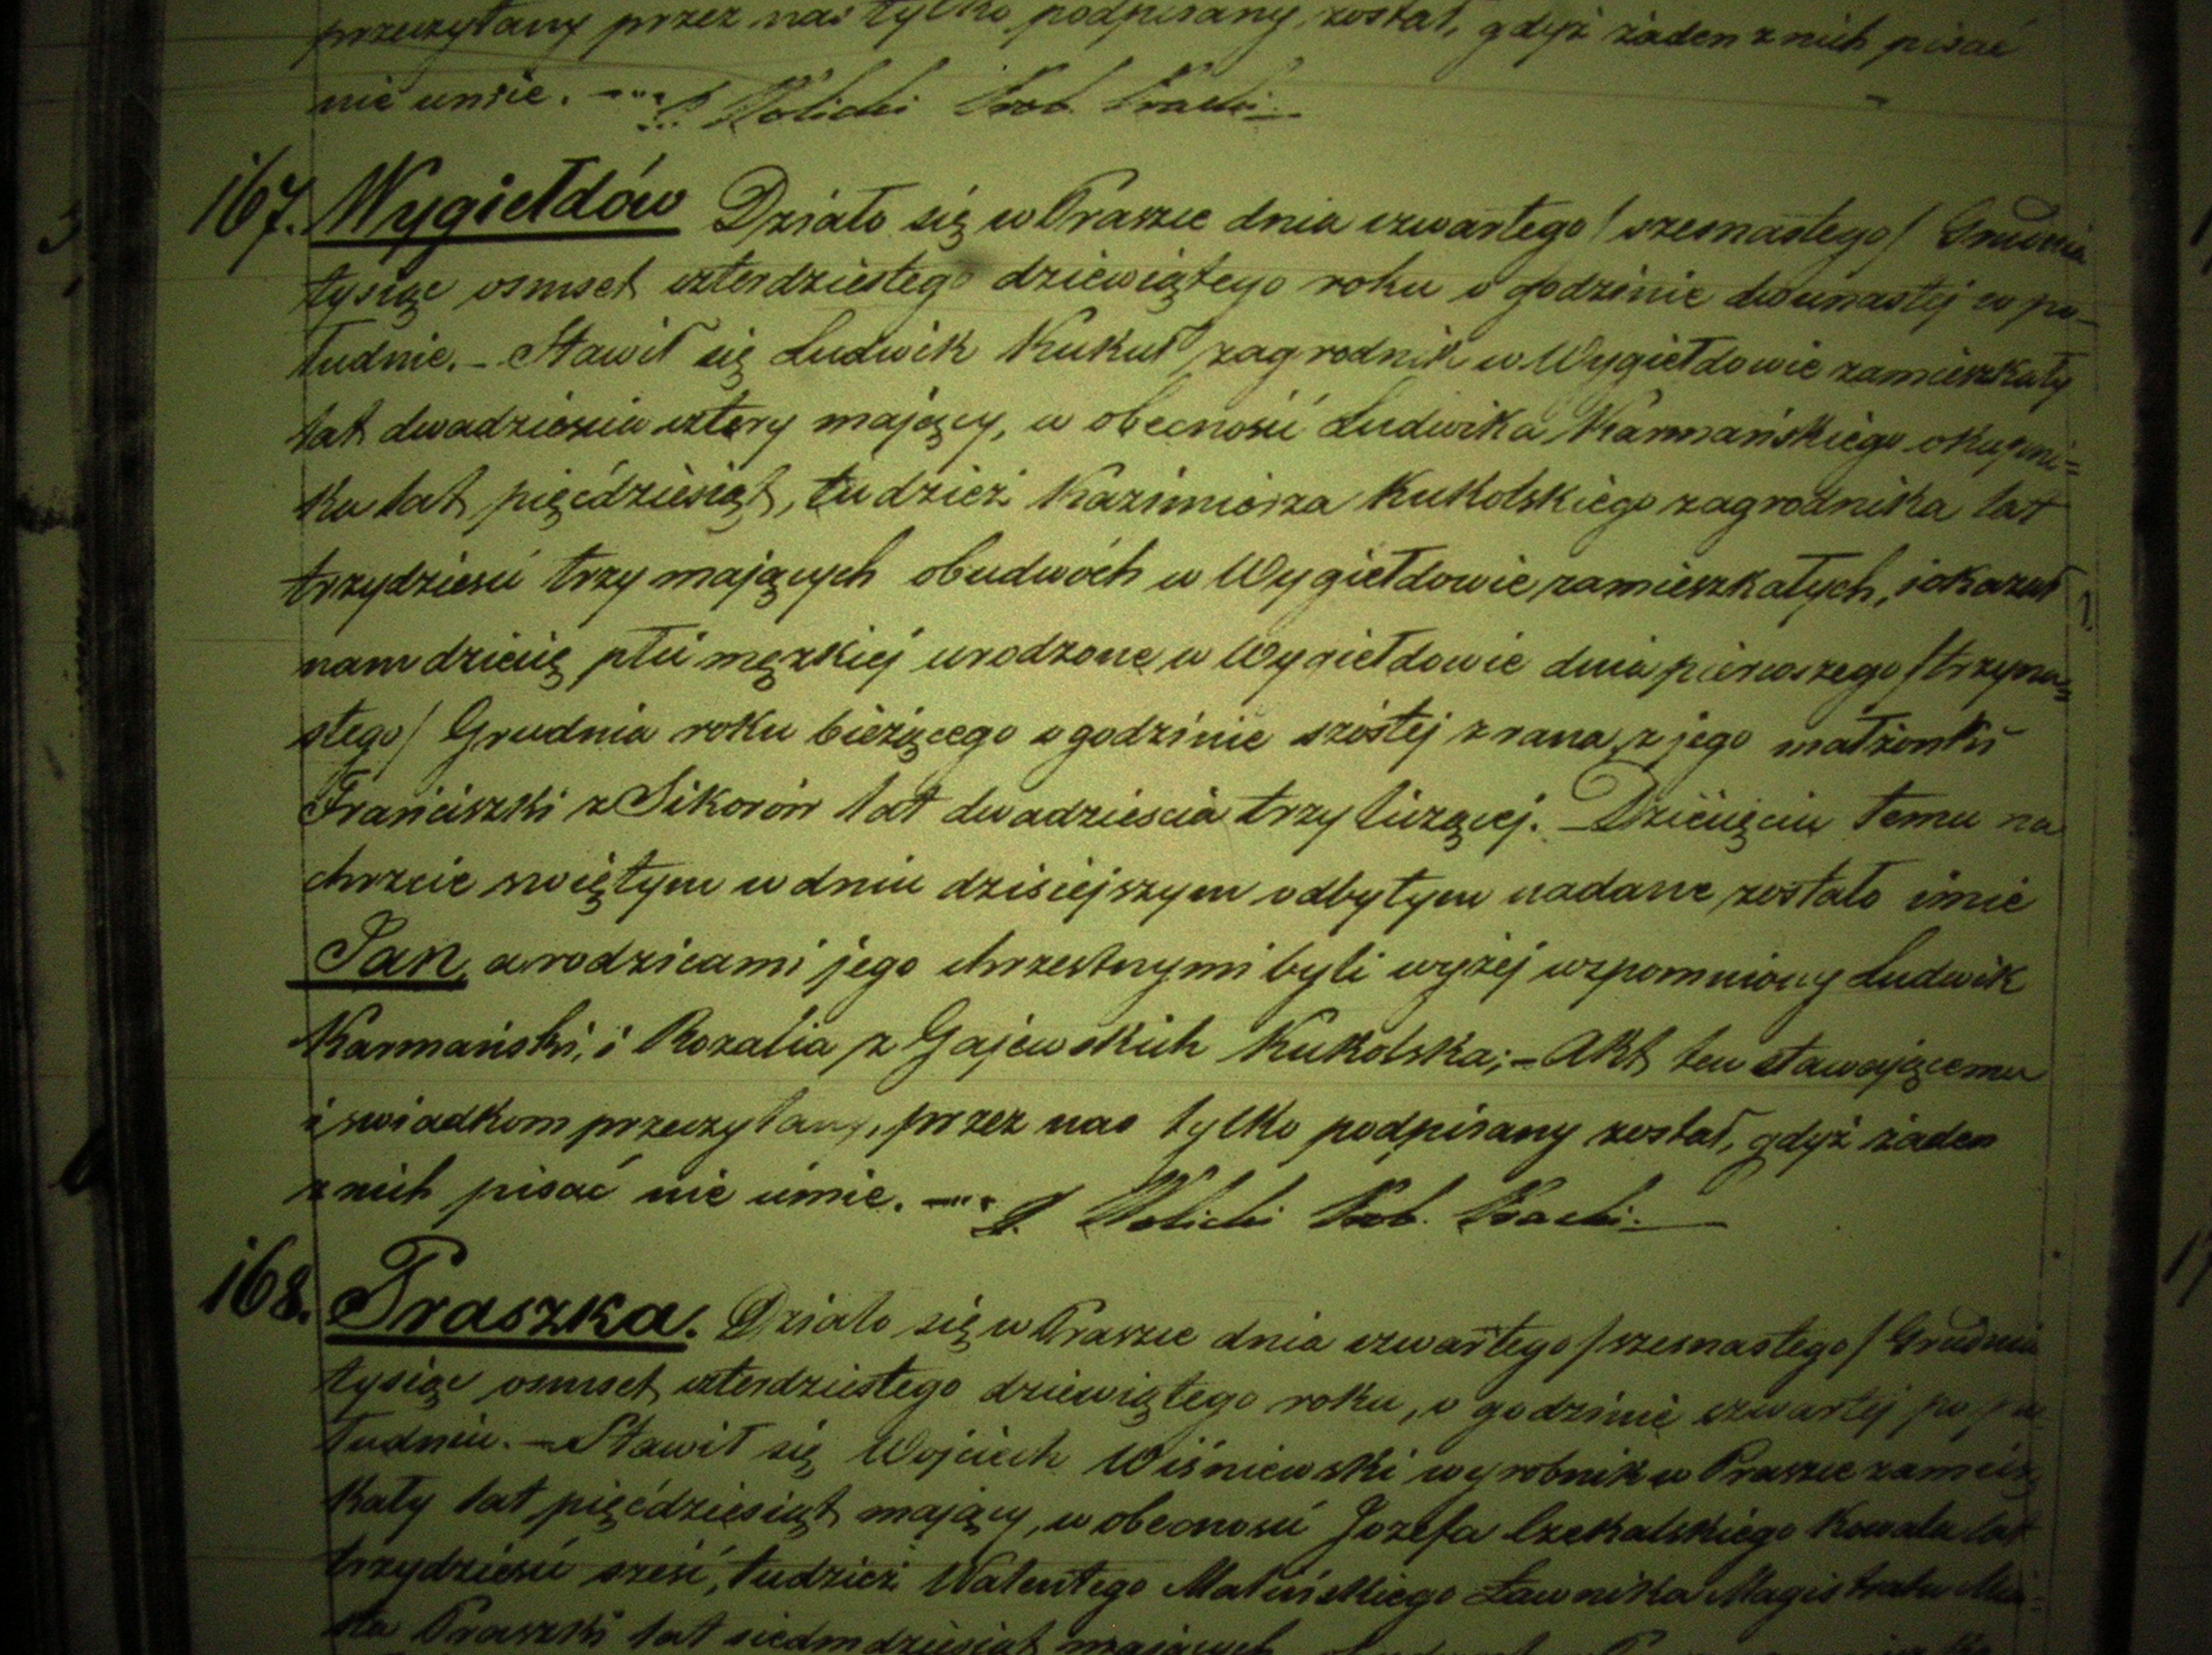 przeczytany przez nas tylko podpisany został, gdyż żaden z nich pisać
nie umie. —
167. Wygiełdów Działo się w Praszce dnia czwartego /szesnastego/ Grudnia
tysiąc osmset czterdziestego dziewiątego roku o godzinie dwunastej w po-
łudnie. – Stawił się Ludwik Kukuł zagrodnik w Wygiełdowie zamieszkały
lat dwadzieścia cztery mający, w obecności Ludwika Karmańskiego okupni-
ka lat pięćdziesiąt, tudzież Kazimierza Kukolskiego zagrodnika lat
trzydzieści trzy mających obudwóch w Wygiełdowie zamieszkałych, i okazał
nam dziecię płci męzkiej urodzone w Wygiełdowie dnia pierwszego /trzyna-
stego/ Grudnia roku bieżącego o godzinie szóstej z rana z jego małżonki
Franciszki z Sikorów lat dwadzieścia trzy liczącej. – Dziecięciu temu na
chrzcie świętym w dniu dzisiejszym odbytym nadane zostało imie
Jan, a rodzicami jego chrzestnymi byli wyżej wzpomniony Ludwik
Karmański, i Rozalia z Gajewskich Kukolska; – Akt ten stawającemu
i świadkom przeczytany, przez nas tylko podpisany został, gdyż żaden
z nich pisać nie umie. —
168. Praszka. Działo się w Praszce dnia czwartego /szesnastego/ Grudnia
tysiąc osmset czterdziestego dziewiątego roku, o godzinie czwartej po po
łudniu. – Stawił się Wojciech Wiśniewski wyrobnik w Praszce zamiesz
kały lat pięćdziesiąt mający, w obecności Jozefa Czekalskiego Kowala lat
trzydzieści sześć, tudzież Walentego Malińskiego Ławnika Magistratu Mia-
sta Praszki lat siedmdziesiąt mających